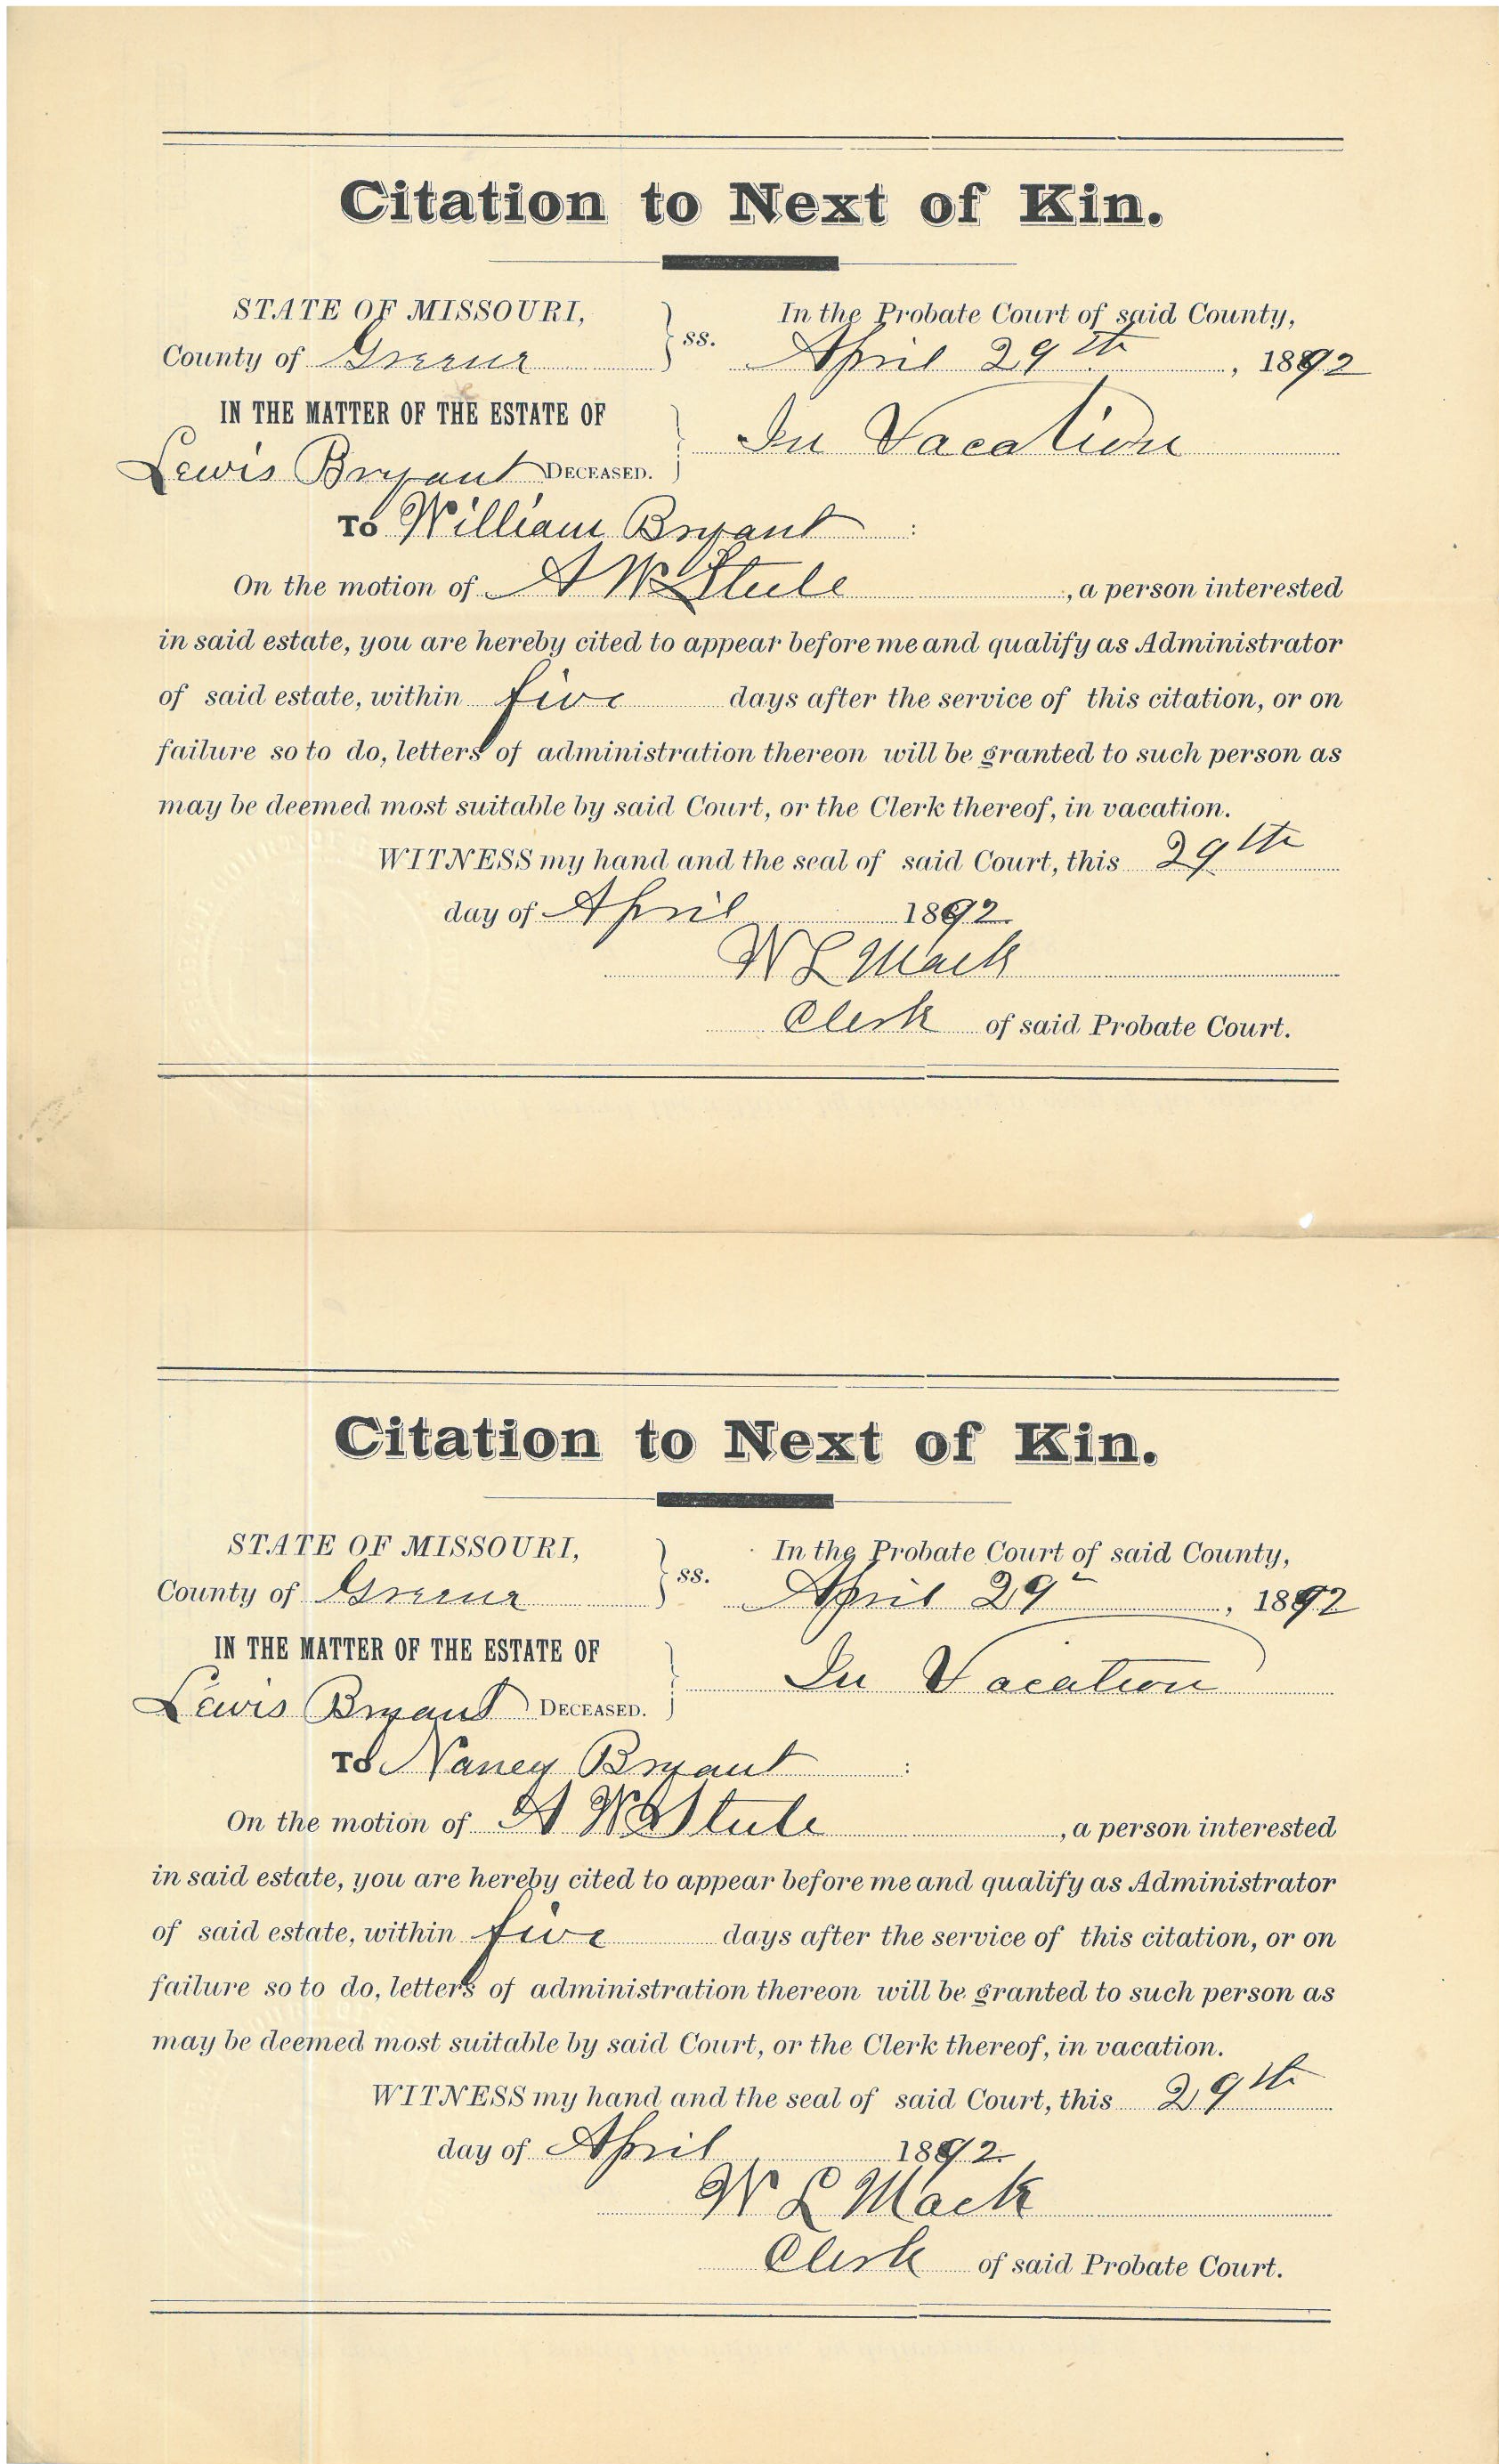 Citation to Next of Kin.
STATE OF MISSOURI,
County of Greene
ss.
In the Probate Court of said County,
April 29th, 1892
IN THE MATTER OF THE ESTATE OF
Lewis Bryant DECEASED.
In Vacation
To William Bryant :
On the motion of A W Stule, a person interested
in said estate, you are hereby cited to appear before me and qualify as Administrator
of said estate, within five days after the service of this citation, or on
failure so to do, letters of administration thereon will be granted to such person as
may be deemed most suitable by said Court, or the Clerk thereof, in vacation.
WITNESS my hand and the seal of said Court, this 29th
day of April 1892.
W L Mack
Clerk of said Probate Court.
Citation to Next of Kin.
STATE OF MISSOURI,
County of Greene
ss.
In the Probate Court of said County,
April 29", 1892
IN THE MATTER OF THE ESTATE OF
Lewis Bryant DECEASED.
In Vacation
To Nancy Bryant :
On the motion of A W Stule, a person interested
in said estate, you are hereby cited to appear before me and qualify as Administrator
of said estate, within five days after the service of this citation, or on
failure so to do, letters of administration thereon will be granted to such person as
may be deemed most suitable by said Court, or the Clerk thereof, in vacation.
WITNESS my hand and the seal of said Court, this 29th
day of April 1892.
W L Mack
Clerk of said Probate Court.